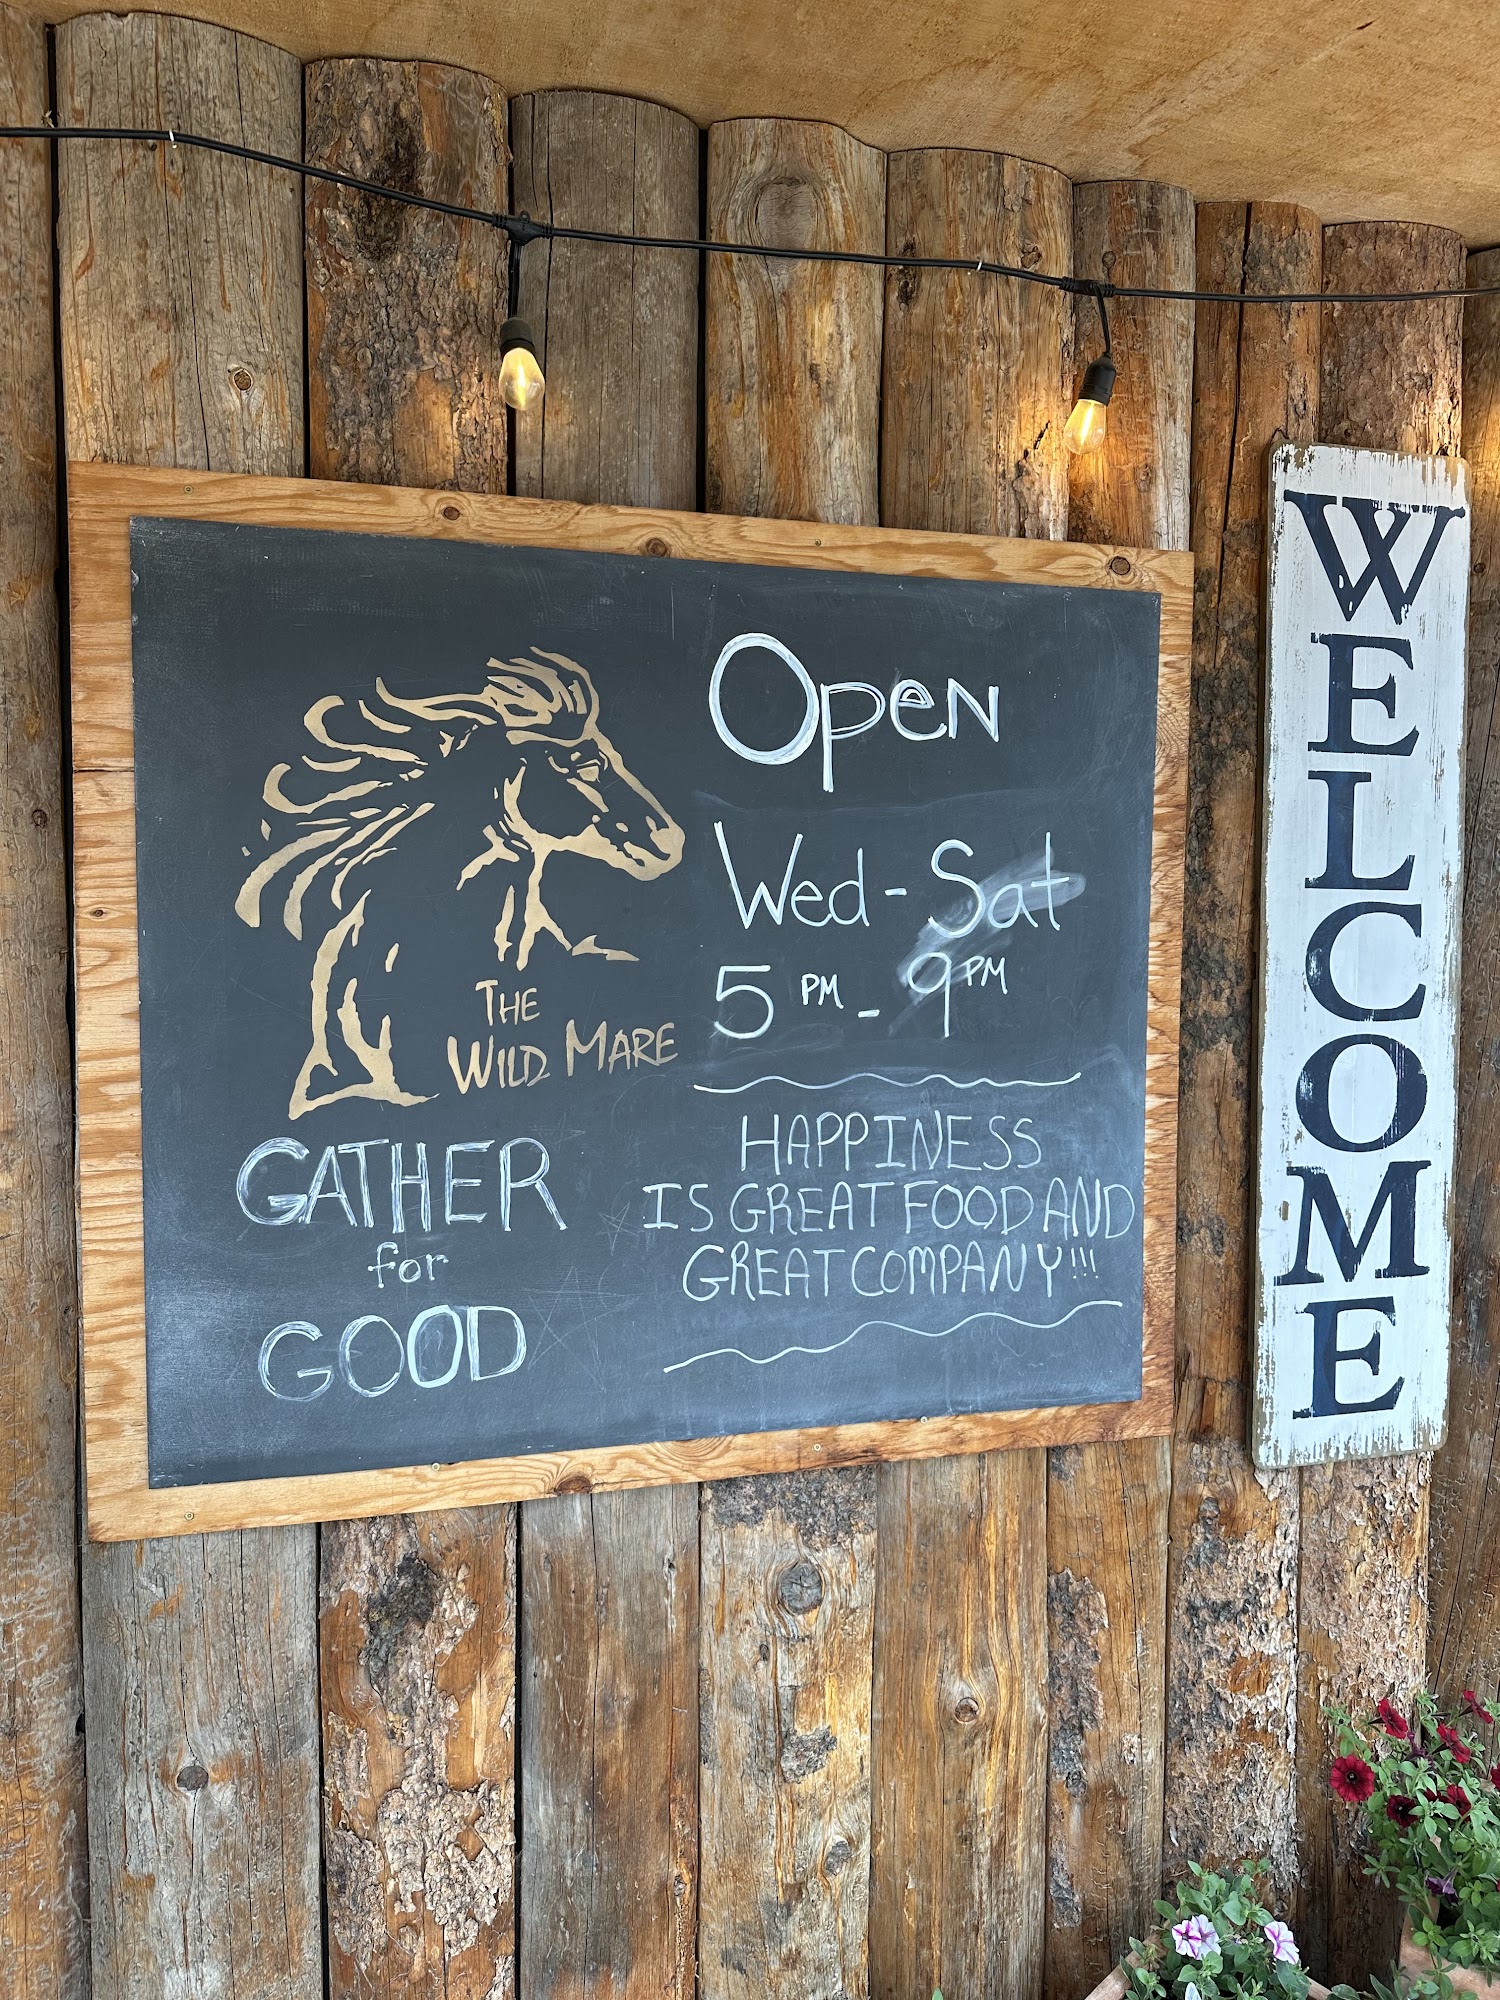 THE
WILD MARE
GATHER
for
GOOD
Open
Wed - Sat
5 PM - 9 PM
HAPPINESS
IS GREAT FOOD AND
GREAT COMPANY!!!
WELCOME